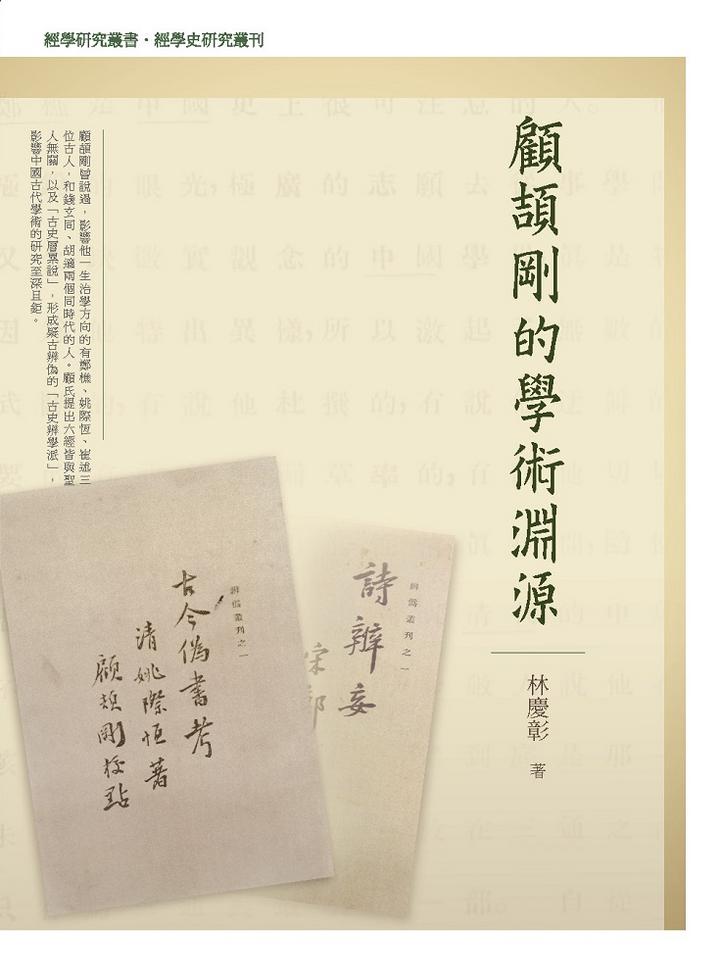 經學研究叢書・經學史研究叢刊
顧頡剛的學術淵源
林慶彰 著
顧頡剛曾說過，影響他一生治學方向的有鄭樵、姚際恆、崔述三
位古人，和錢玄同、胡適兩個同時代的人。顧氏提出六經皆與聖
人無關，以及「古史層累說」，形成疑古辨偽的「古史辨學派」，
影響中國古代學術的研究至深且鉅。
辨偽叢刊之一
詩辨妄
宋鄭
辨偽叢刊之一
古今偽書考
清姚際恒著
顧頡剛校點